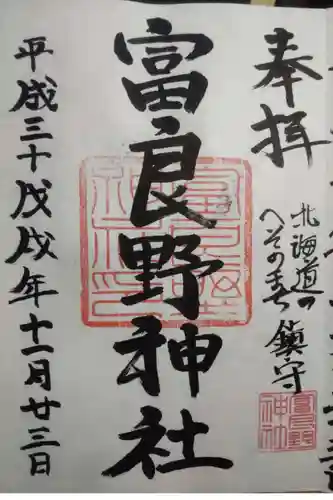 奉拝
北海道の
へそのまち 鎮守
富良野
神社
富良野神社
平成三十戊戌年十一月廿三日